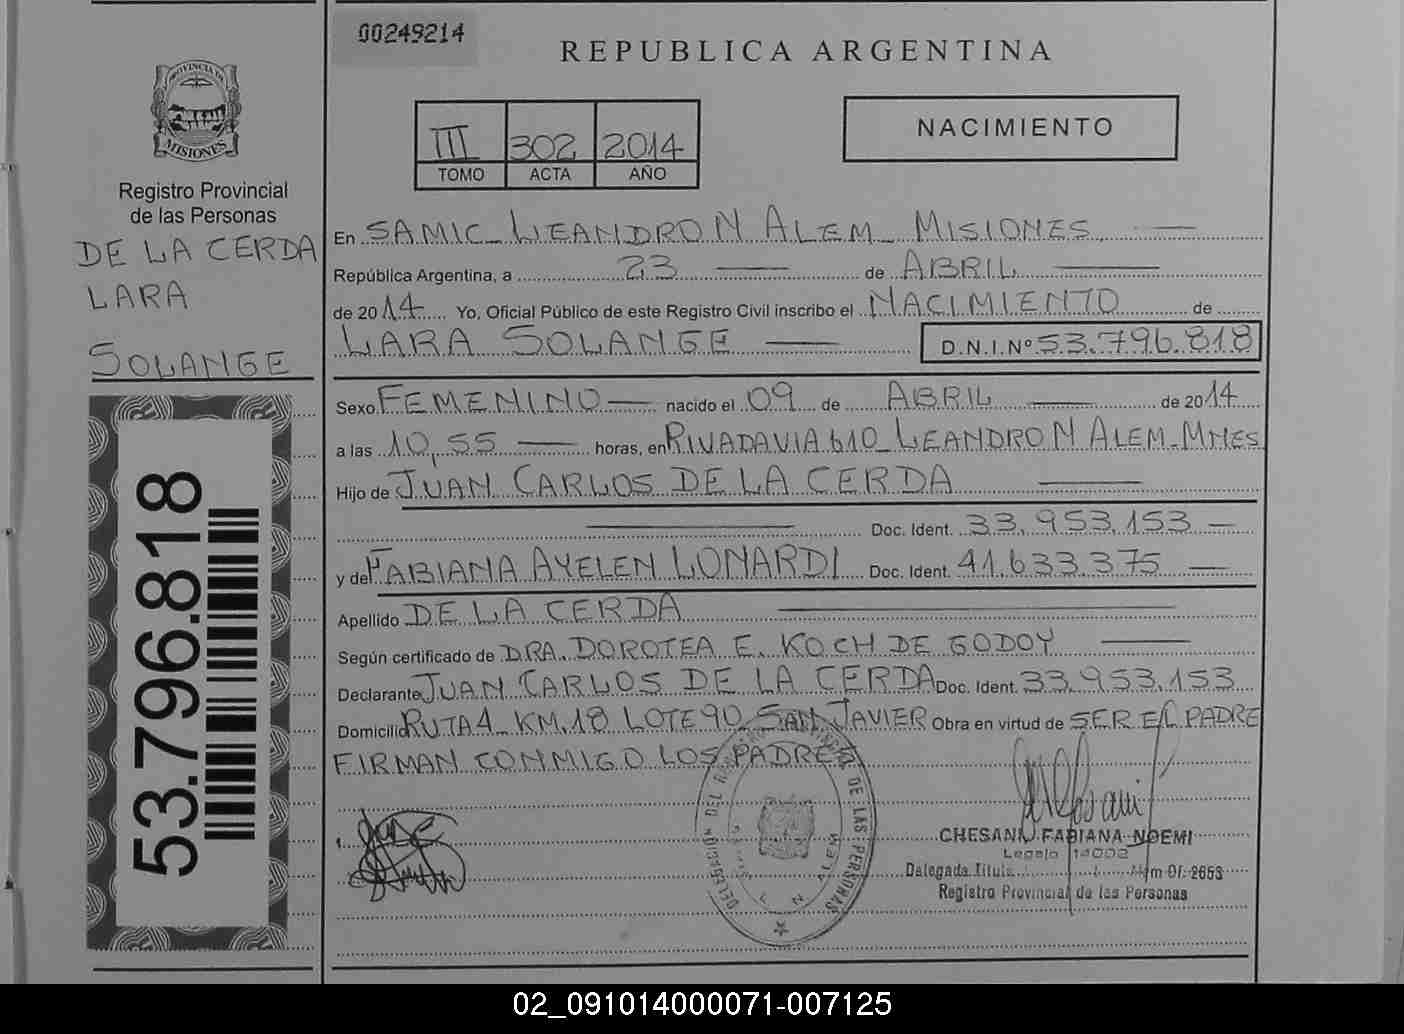 00249214
REPUBLICA ARGENTINA
PROVINCIA DE
MISIONES
Registro Provincial
de las Personas
DE LA CERDA
LARA
SOLANGE
53.796.818
III 302 2014
TOMO ACTA AÑO
NACIMIENTO
En SAMIC LEANDRO N ALEM MISIONES
República Argentina, a 23 de ABRIL
de 2014 Yo, Oficial Público de este Registro Civil inscribo el NACIMIENTO de
LARA SOLANGE D.N.I.Nº 53.796.818
Sexo FEMENINO nacido el 09 de ABRIL de 2014
a las 10,55 horas, en RIVADAVIA 610 LEANDRO N ALEM-MNES
Hijo de JUAN CARLOS DE LA CERDA
Doc. Ident. 33.953.153
y de FABIANA AYELEN LONARDI Doc. Ident. 41.633.375
Apellido DE LA CERDA
Según certificado de DRA. DOROTEA E. KOCH DE GODOY
Declarante JUAN CARLOS DE LA CERDA Doc. Ident. 33.953.153
Domicilio RUTA 4 KM.18 LOTE 90 SAN JAVIER Obra en virtud de SER EL PADRE
FIRMAN CONMIGO LOS PADRES
DELEGACION DEL REGISTRO PROVINCIAL DE LAS PERSONAS
L. N. ALEM
CHESANI FABIANA NOEMI
Legajo 14002
Delegada Titular Alem Of. 2653
Registro Provincial de las Personas
02_091014000071-007125